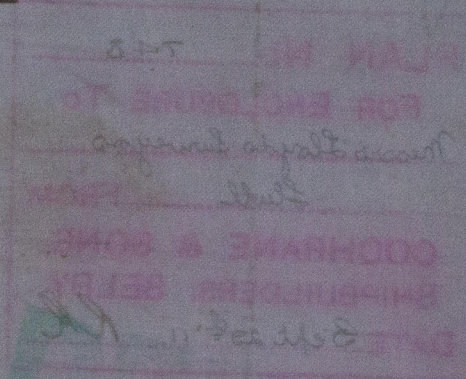 PLAN No. 748
FOR ENCLOSURE TO
Messrs Lloyds Surveyors
Hull FROM
COCHRANE & SONS
SHIPBUILDERS SELBY
DATE Sept